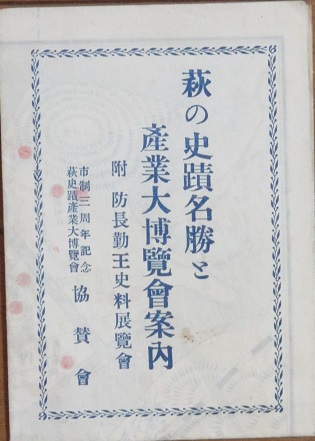 萩の史蹟名勝と
產業大博覽會案內
附 防長勤王史料展覽會
市制三周年記念
萩史蹟產業大博覽會
協賛會